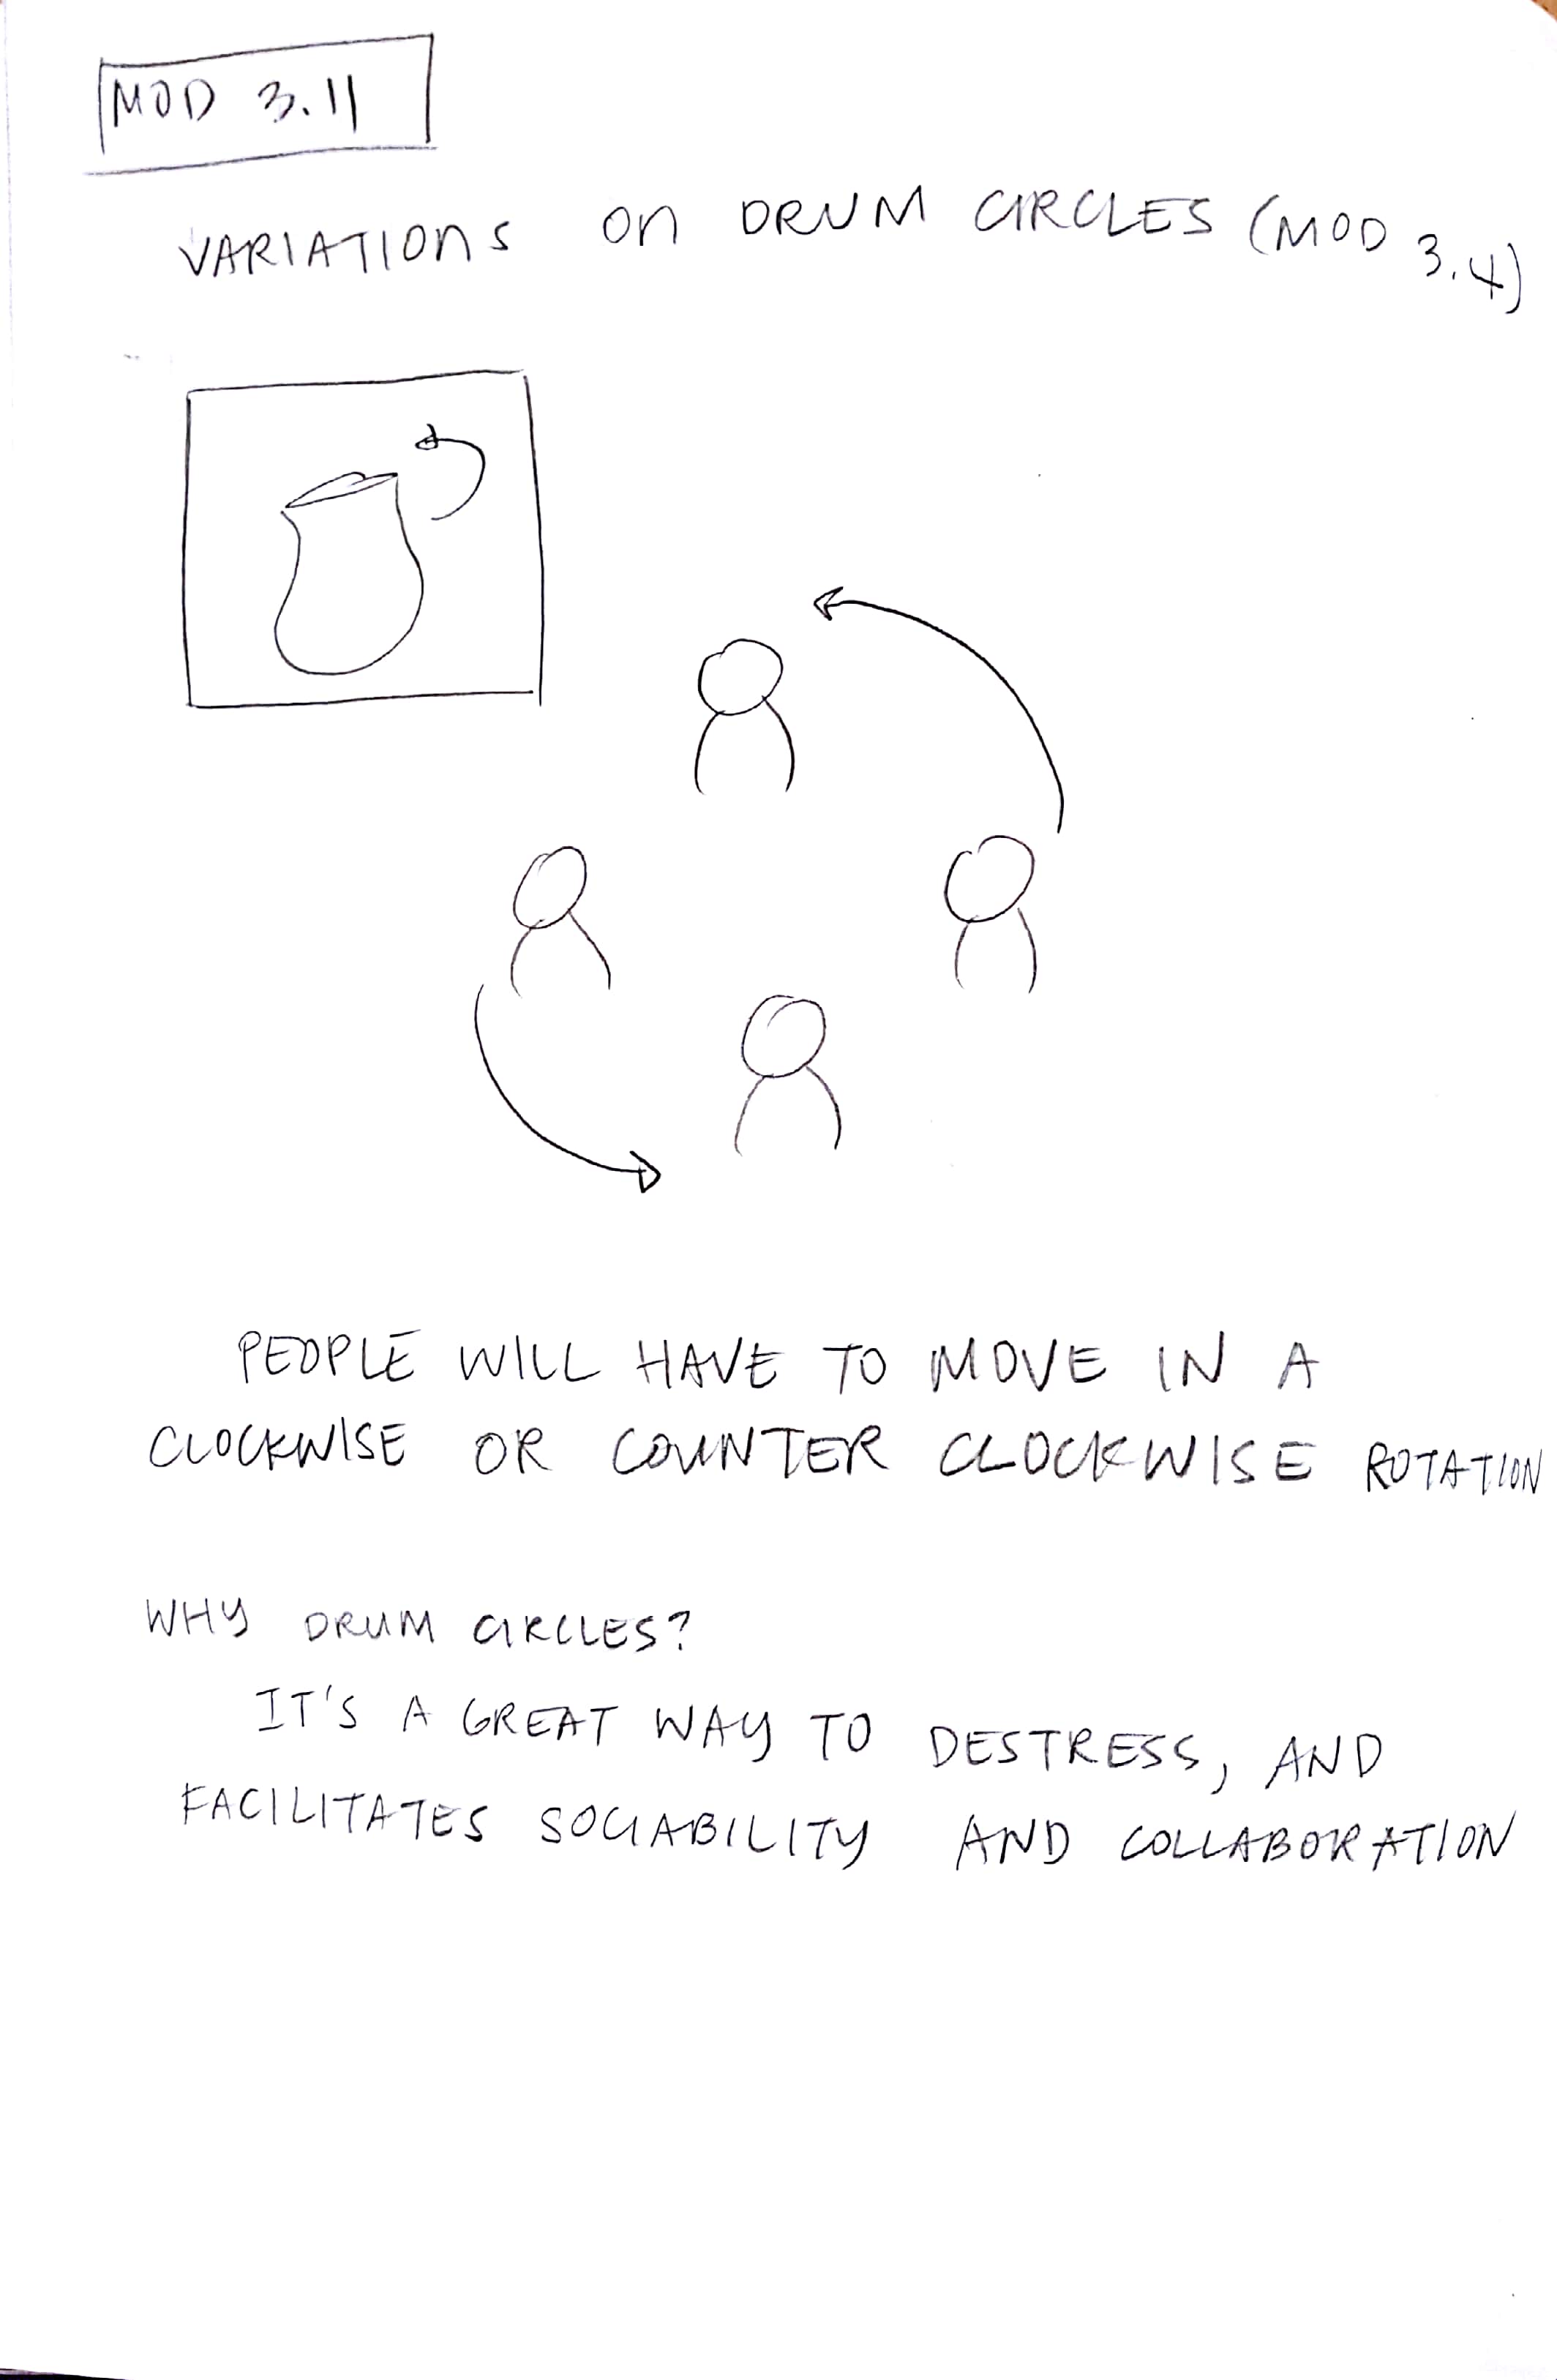 MOD 3.11
VARIATIONS ON DRUM CIRCLES (MOD 3.4)
PEOPLE WILL HAVE TO MOVE IN A
CLOCKWISE OR COUNTER CLOCKWISE ROTATION
WHY DRUM CIRCLES?
IT'S A GREAT WAY TO DESTRESS, AND
FACILITATES SOCIABILITY AND COLLABORATION